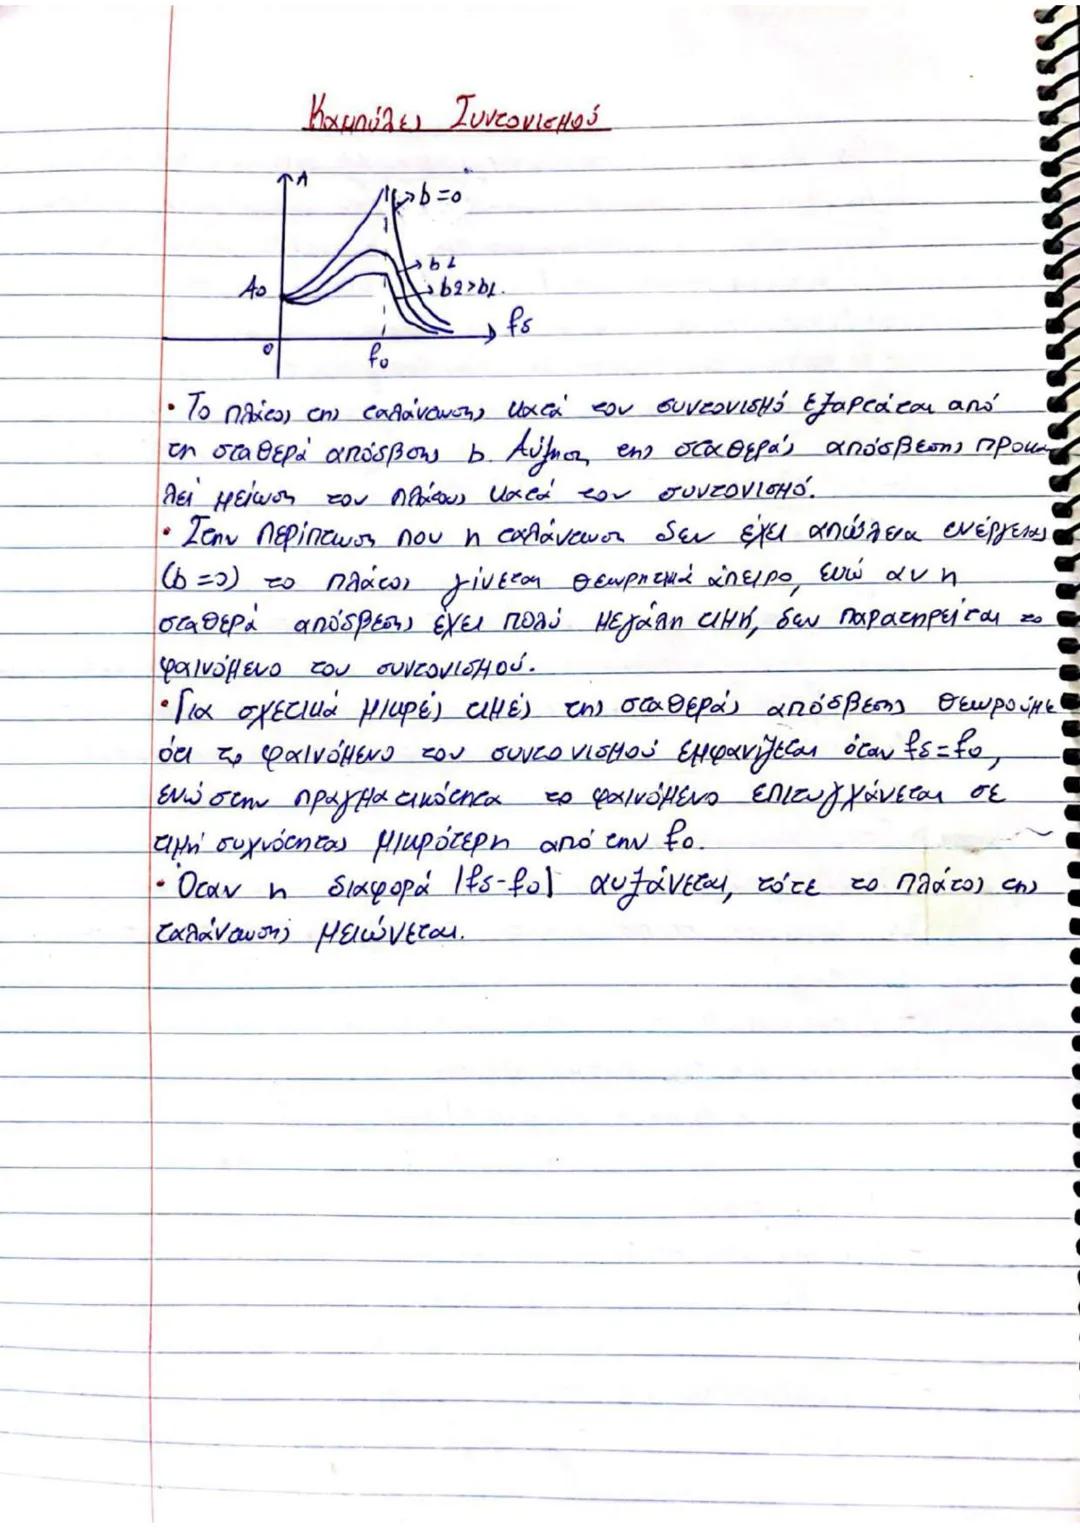 Καμπύλες Συντονισμού
A
b=0
b1
A0
b2>b1.
fs
0
f0
• Το πλάτος της ταλάντωσης κατά τον συντονισμό εξαρτάται από
τη σταθερά απόσβσης b. Αύξηση της σταθεράς απόσβεσης προκα
λεί μείωση του πλάτους κατά τον συντονισμό.
• Στην περίπτωση που η ταλάντωση δεν έχει απώλεια ενέργειας
(b=0) το πλάτος γίνεται θεωρητικά άπειρο, ενώ αν η
σταθερά απόσβεσης έχει πολύ μεγάλη τιμή, δεν παρατηρείται το
φαινόμενο του συντονισμού.
• Για σχετικά μικρές τιμές της σταθεράς απόσβεσης θεωρούμε
ότι το φαινόμενο του συντονισμού εμφανίζεται όταν fs=f0,
ενώ στην πραγματικότητα το φαινόμενο επιτυγχάνεται σε
τιμή συχνότητας μικρότερη από την f0.
• Όταν η διαφορά |fs-f0| αυξάνεται, τότε το πλάτος της
ταλάντωσης μειώνεται.